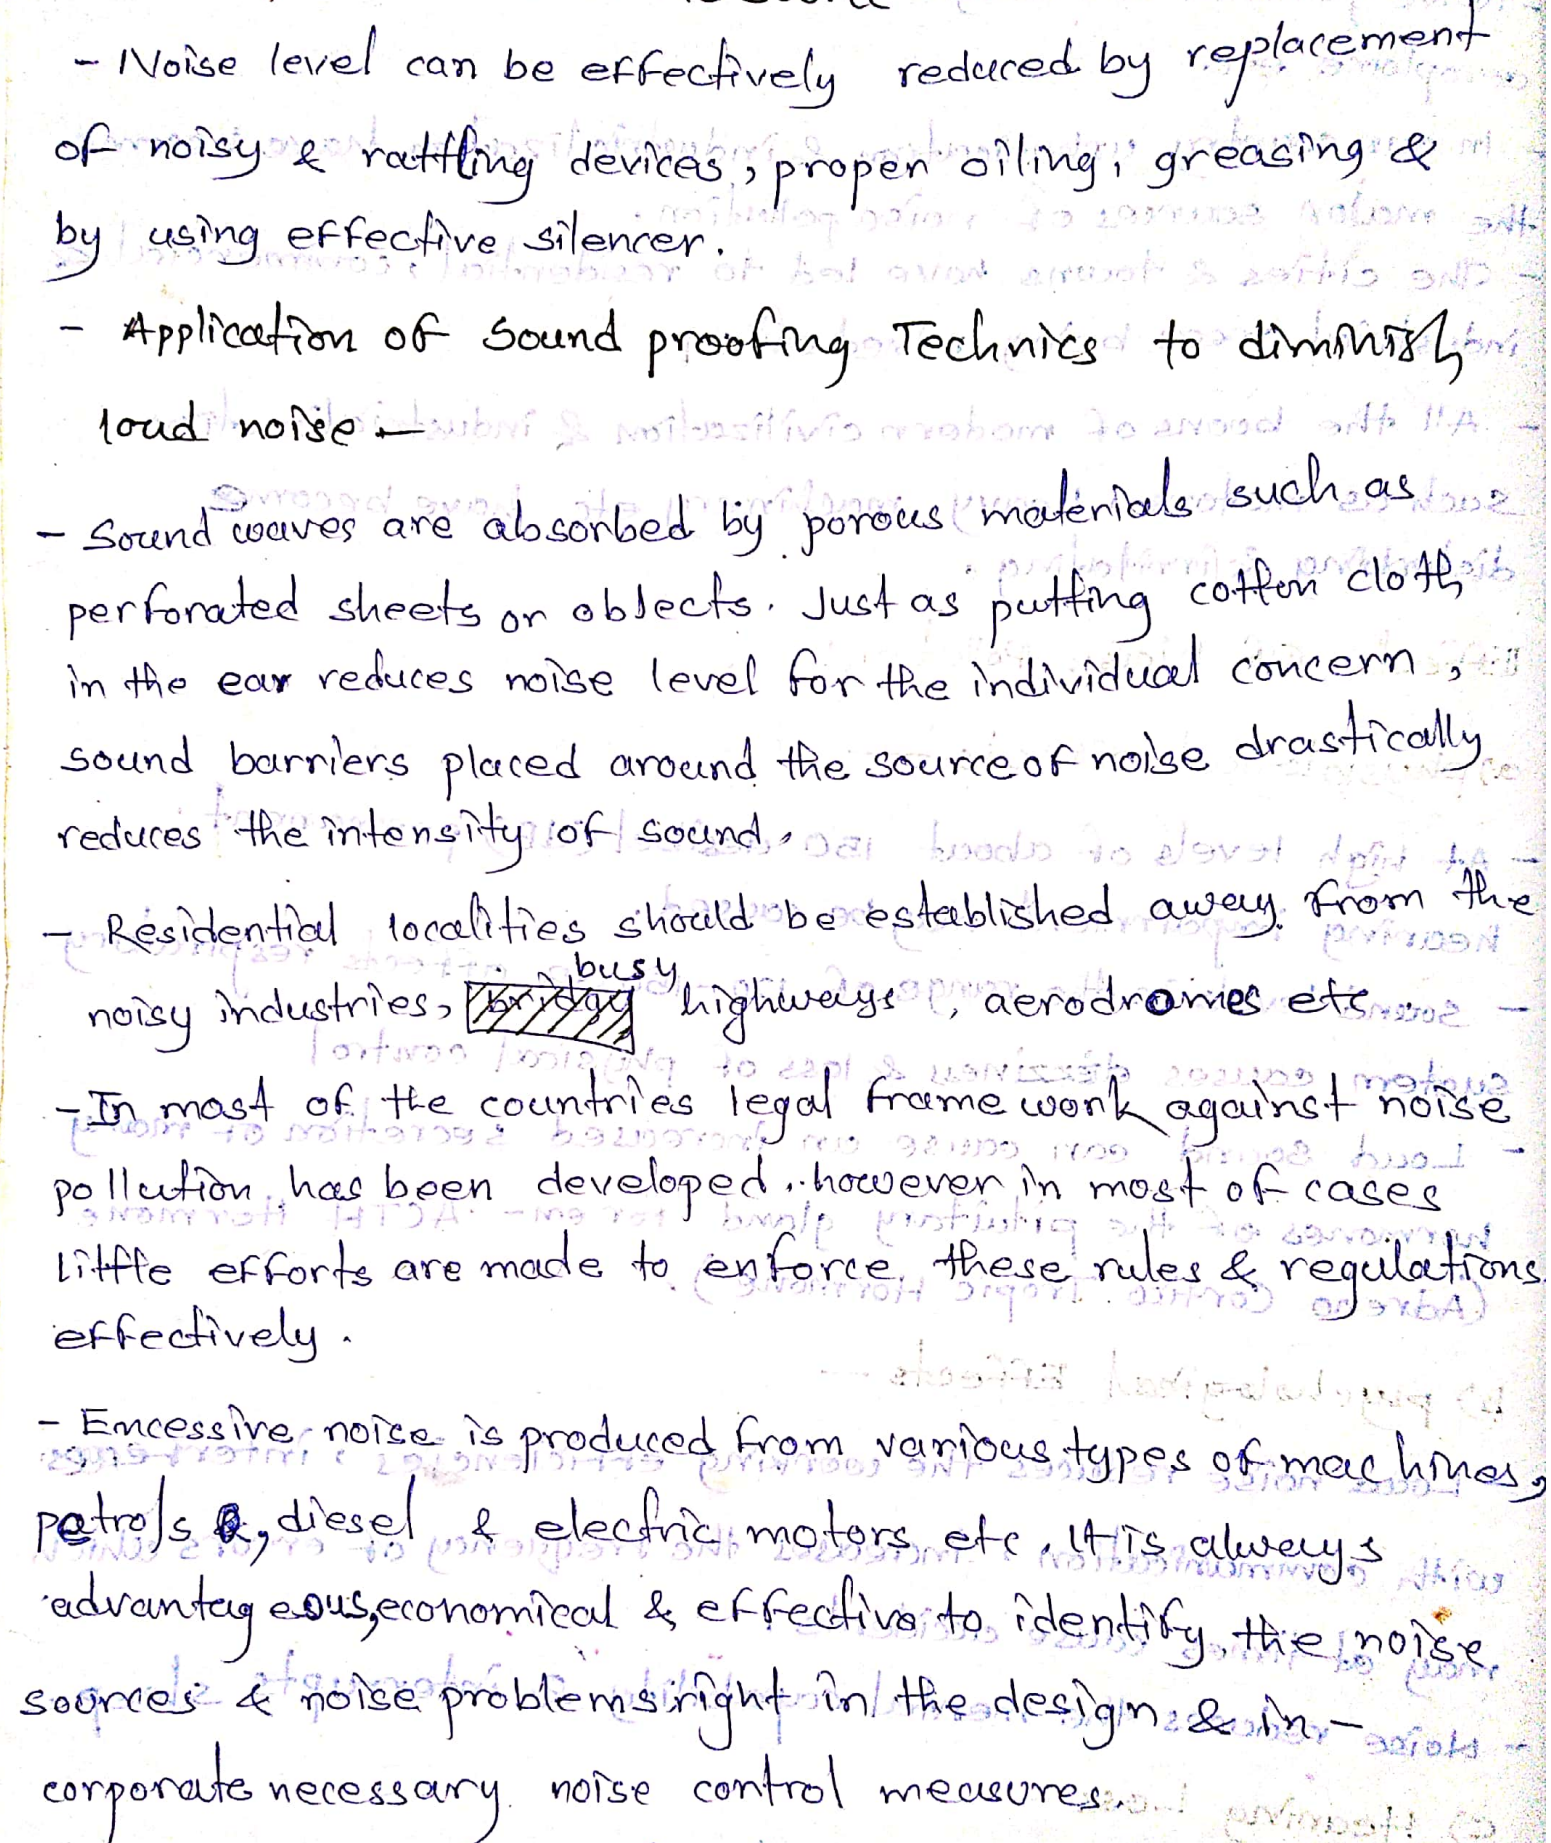 - Noise level can be effectively reduced by replacement
of noisy & rattling devices, proper oiling, greasing &
by using effective silencer.
- Application of Sound proofing Technics to diminish
loud noise -
- Sound waves are absorbed by porous materials such as
perforated sheets or objects. Just as putting cotton cloth
in the ear reduces noise level for the individual concern,
sound barriers placed around the source of noise drastically
reduces the intensity of sound.
- Residential localities should be established away from the
busy
noisy industries, highways, aerodromes etc.
- In most of the countries legal frame work against noise
pollution has been developed. however in most of cases
little efforts are made to enforce these rules & regulations
effectively.
- Excessive noise is produced from various types of machines,
petrols, diesel & electric motors etc. It is always
advantageous, economical & effective to identify the noise
sources & noise problems right in the design & in-
corporate necessary noise control measures.